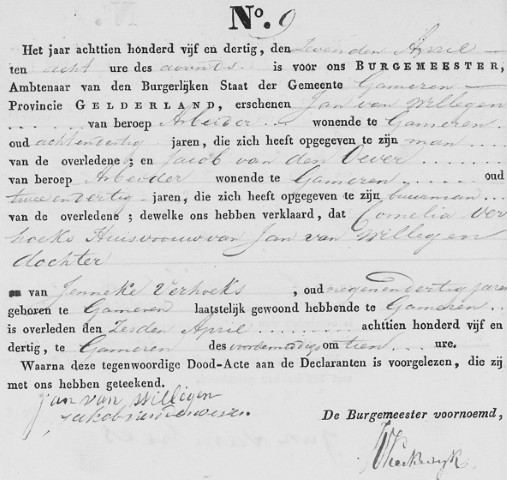 No. 9
Het jaar achttien honderd vijf en dertig, den Zevenden April
ten acht ure des avonds is vóór ons BURGEMEESTER,
Ambtenaar van den Burgerlijken Staat der Gemeente Gameren
Provincie GELDERLAND, erschenen Jan van Willegen
van beroep Arbeider wonende te Gameren
oud achtendertig jaren, die zich heeft opgegeven te zijn man
van de overledene; en Jacob van den Oever
van beroep Arbeider wonende te Gameren oud
twee en dertig jaren, die zich heeft opgegeven te zijn buurman
van de overledene; dewelke ons hebben verklaard, dat Cornelia Ver
hoeks Huisvrouw van Jan van Willegen
dochter
van Jenneke Verhoeks, oud negenendertig jaren
geboren te Gameren laatstelijk gewoond hebbende te Gameren
is overleden den Zesden April achttien honderd vijf en
dertig, te Gameren des voordemiddags om tien ure.
Waarna deze tegenwoordige Dood-Acte aan de Declaranten is voorgelezen, die zij
met ons hebben geteekend.
jan van Willigen
De Burgemeester voornoemd,